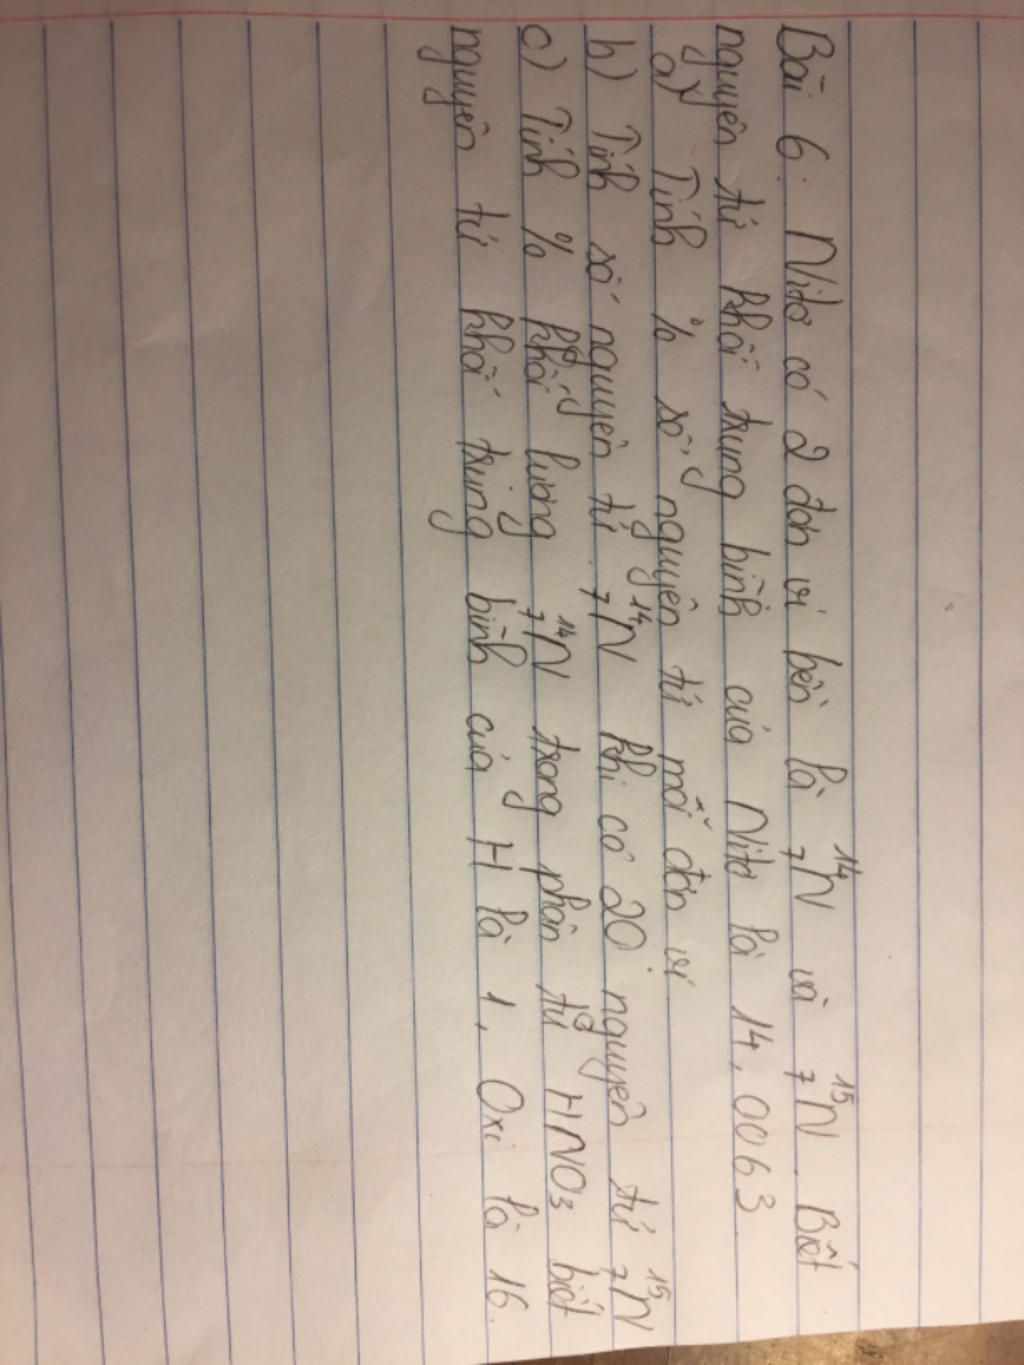 Bài 6: Nitơ có 2 đơn vị bền là ¹⁴₇N và ¹⁵₇N. Biết
nguyên tử khối trung bình của Nitơ là 14,0063
a) Tính % số nguyên tử mỗi đơn vị
b) Tính số nguyên tử ¹⁴₇N khi có 20 nguyên tử ¹⁵₇N
c) Tính % khối lượng ¹⁴₇N trong phân tử HNO₃ biết
nguyên tử khối trung bình của H là 1, Oxi là 16.